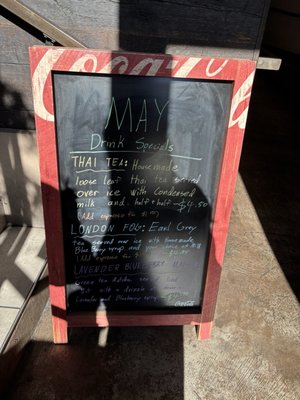 Coca-Cola
MAY
Drink Specials
THAI TEA: Housemade
loose leaf thai tea served
over ice with Condensed
milk and half + half ~$4.50
(Add espresso for $
LONDON FOG: Earl Grey
tea served over ice with homemade
Blueberry syrup and your choice of
(Add espresso for $
LAVENDER BLUEBERRY
Green tea
with a drizzle
Lavender and Blueberry syrup